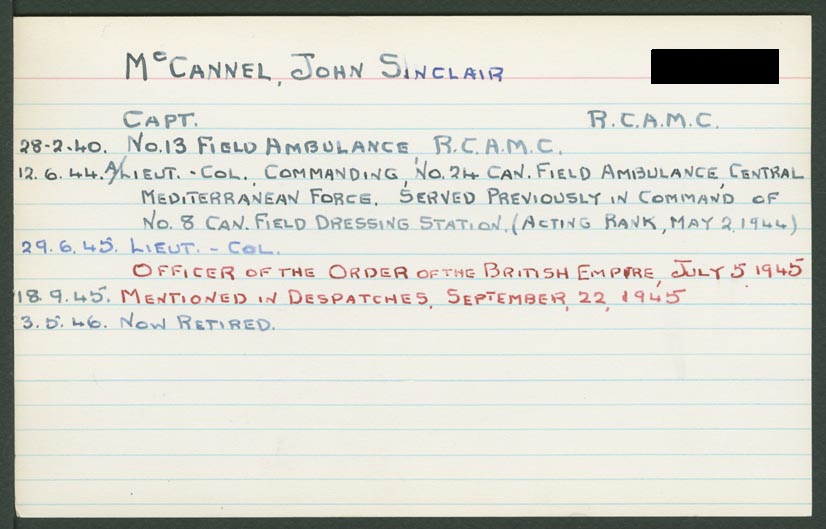 McCannel, John Sinclair
Capt. R.C.A.M.C.
28-2-40. No.13 Field Ambulance, R.C.A.M.C.
12.6.44. A/Lieut.-Col. Commanding, No.24 Can. Field Ambulance, Central
Mediterranean Force. Served Previously in Command of
No. 8 Can. Field Dressing Station. (Acting Rank, May 2, 1944)
29.6.45. Lieut.-Col.
Officer of the Order of the British Empire, July 5 1945
18.9.45. Mentioned in Despatches, September, 22, 1945
3.5.46. Now Retired.